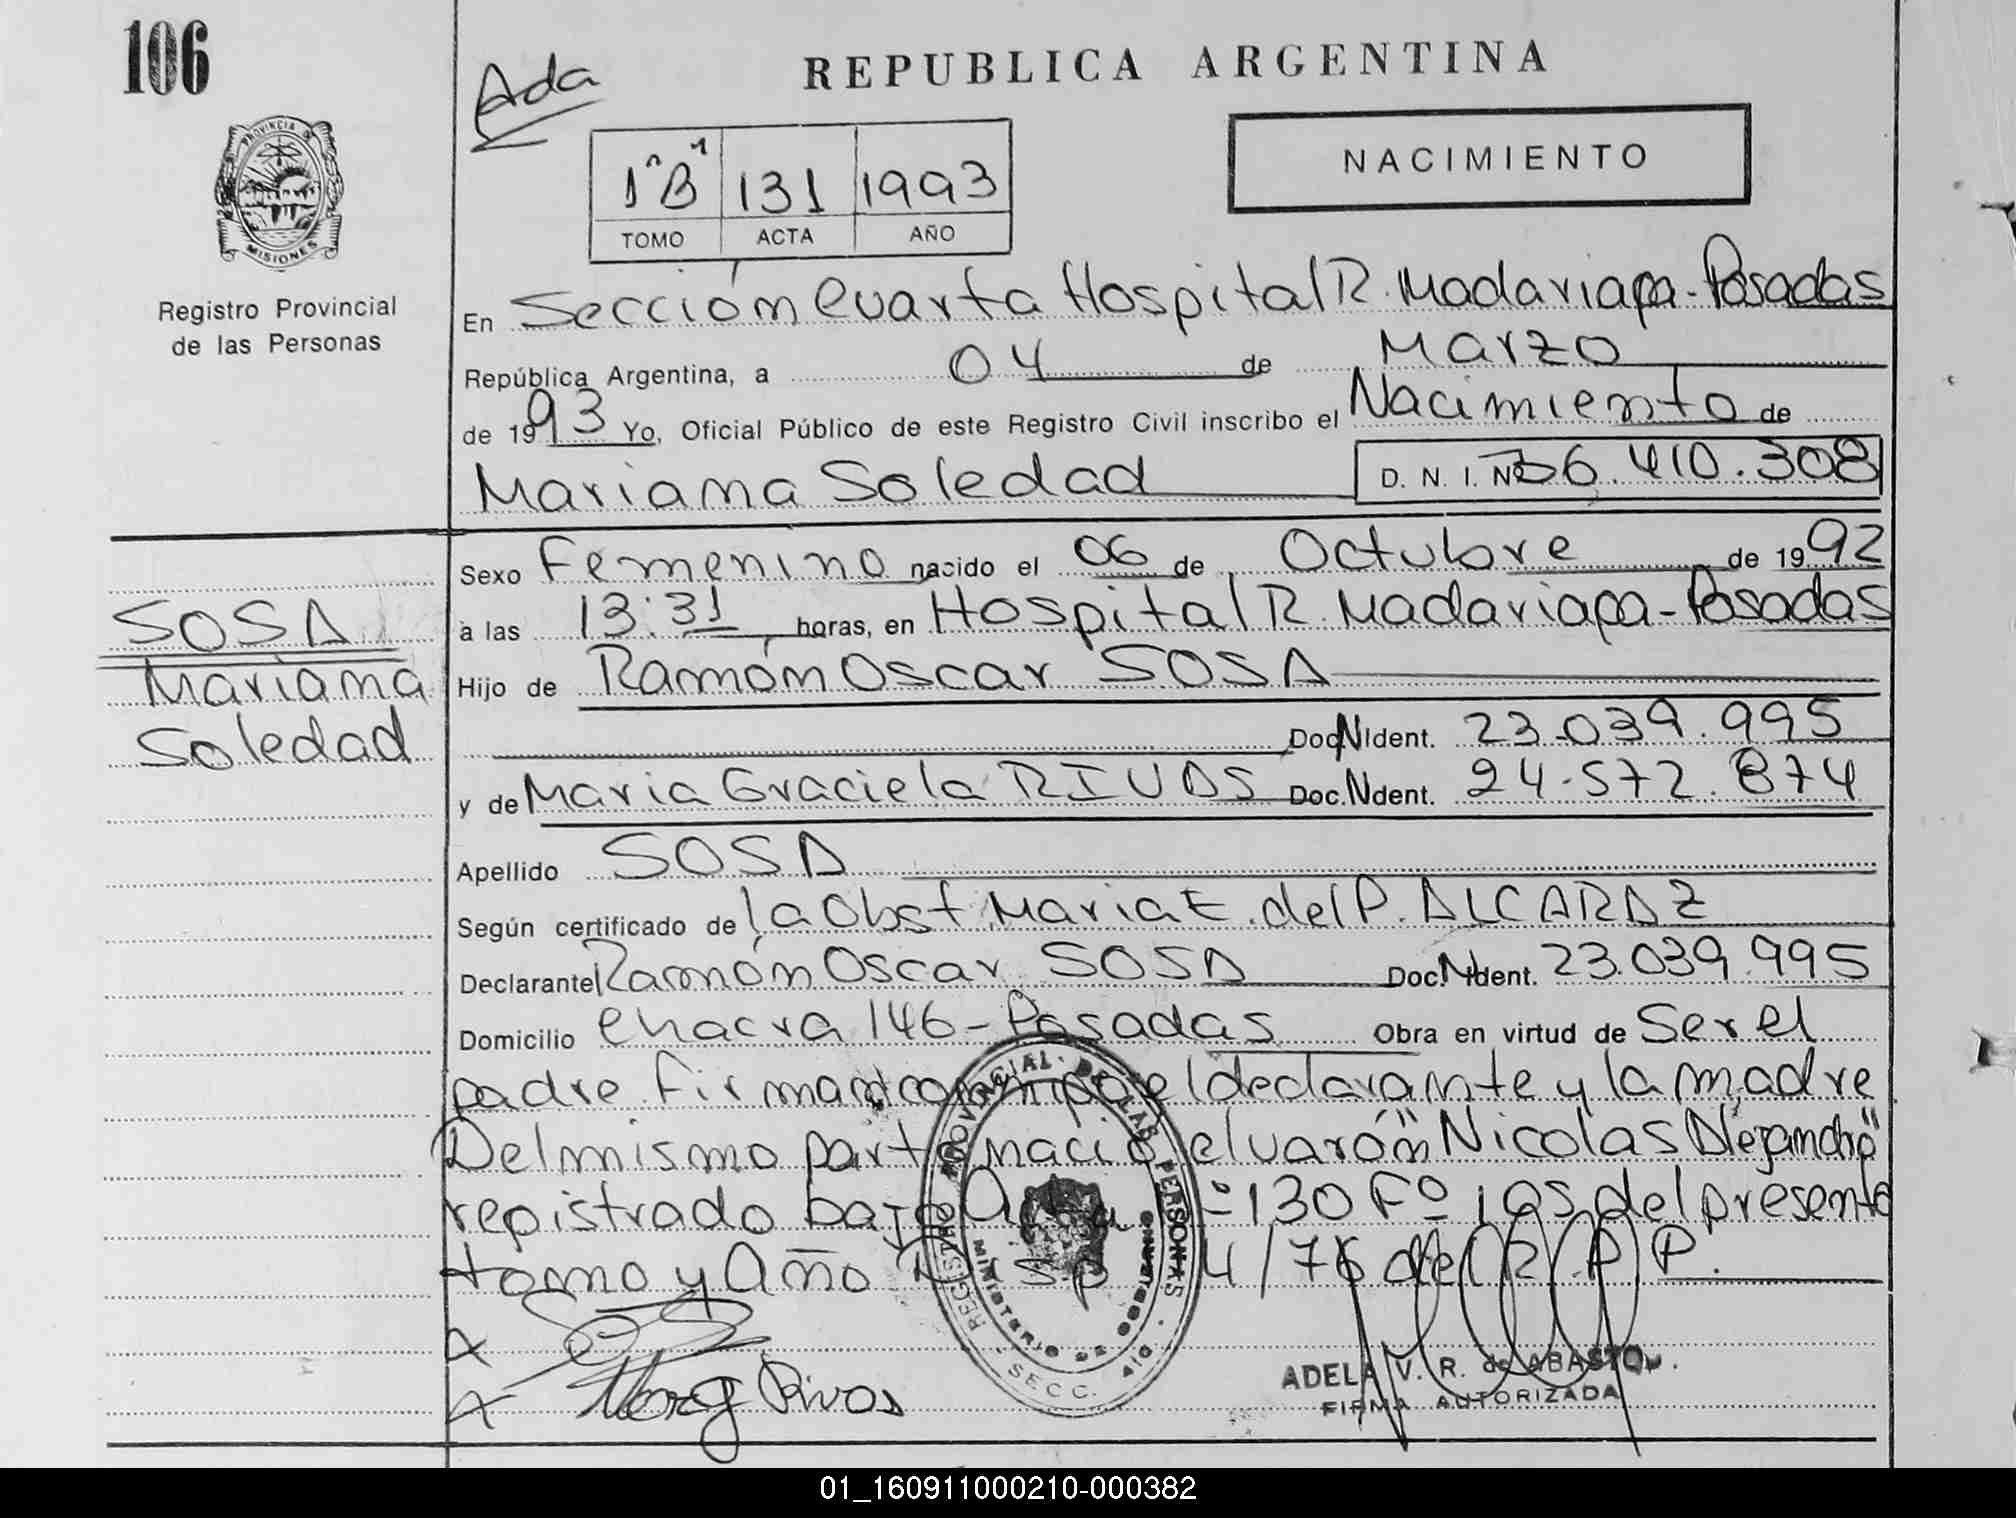 106
Ada
REPUBLICA ARGENTINA
NACIMIENTO
1º B 1 131 1993
TOMO ACTA AÑO
PROVINCIA DE
MISIONES
Registro Provincial
de las Personas
En Sección Cuarta Hospital R. Madariaga - Posadas
República Argentina, a 04 de Marzo
de 1993 Yo, Oficial Público de este Registro Civil inscribo el Nacimiento de
Mariana Soledad D. N. I. Nº 36.410.308
Sexo Femenino nacido el 06 de Octubre de 1992
SOSA
Mariana
Soledad
a las 13:31 horas, en Hospital R. Madariaga - Posadas
Hijo de Ramón Oscar SOSA
Doc.N.Ident. 23.039.995
y de Maria Graciela RIVAS Doc.N.Ident. 24.572.874
Apellido SOSA
Según certificado de la Obst Maria E. del P. ALCARAZ
Declarante Ramón Oscar SOSA Doc.N.Ident. 23.039.995
Domicilio Chacra 146 - Posadas Obra en virtud de Ser el
padre firmando el declarante y la madre
Del mismo parto nació el varón "Nicolas Alejandro"
registrado bajo Acta º 130 Fº 105 del presente
tomo y Año Disp 4/76 del R.P.P.
REGISTRO PROVINCIAL DE LAS PERSONAS
MINISTERIO DE GOBIERNO
SECC. 4ta.
x
x Rivas
ADELA V. R. de ABASTO
FIRMA AUTORIZADA
01_160911000210-000382